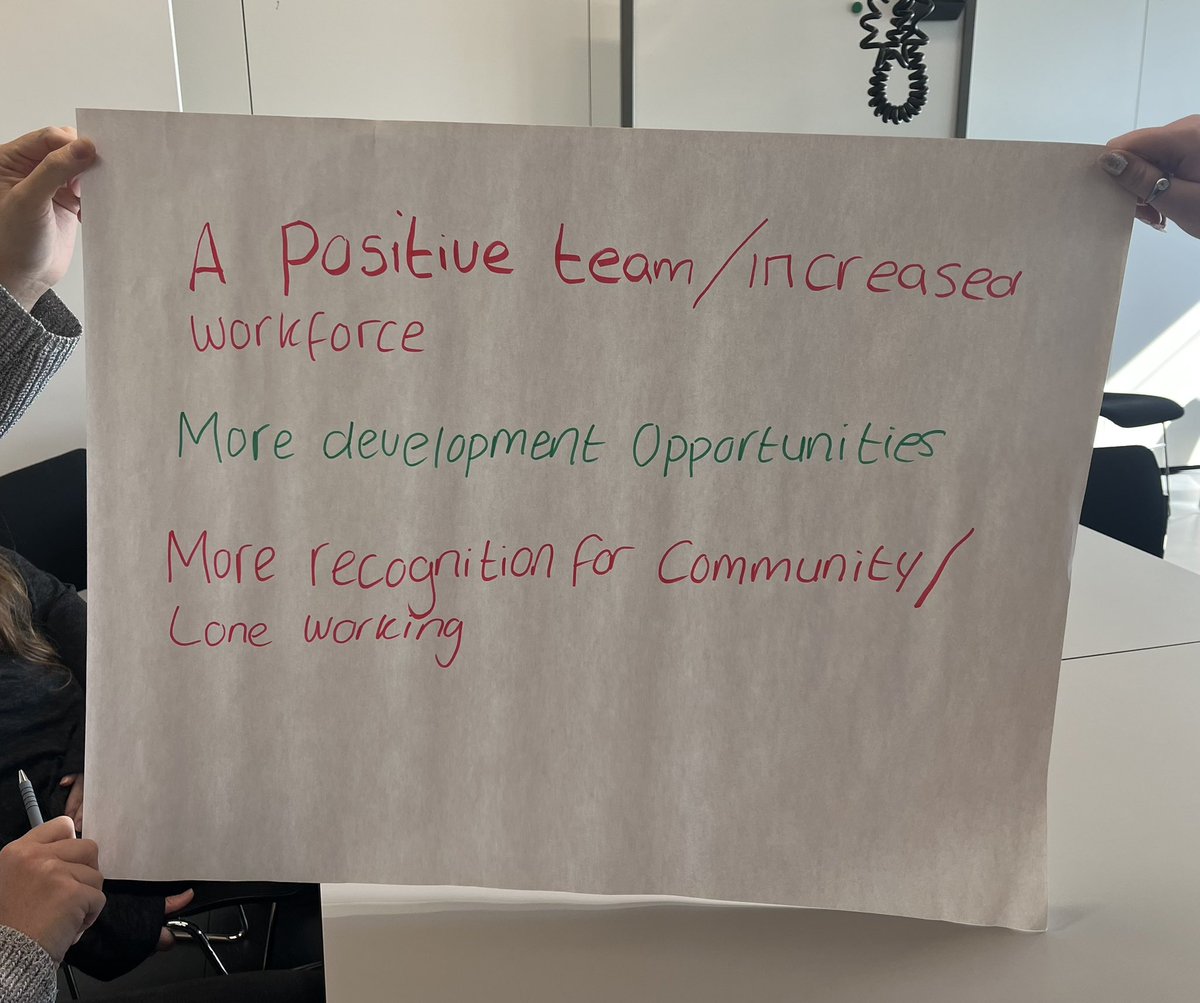 A Positive team/increased
workforce
More development Opportunities
More recognition for Community/
Lone working